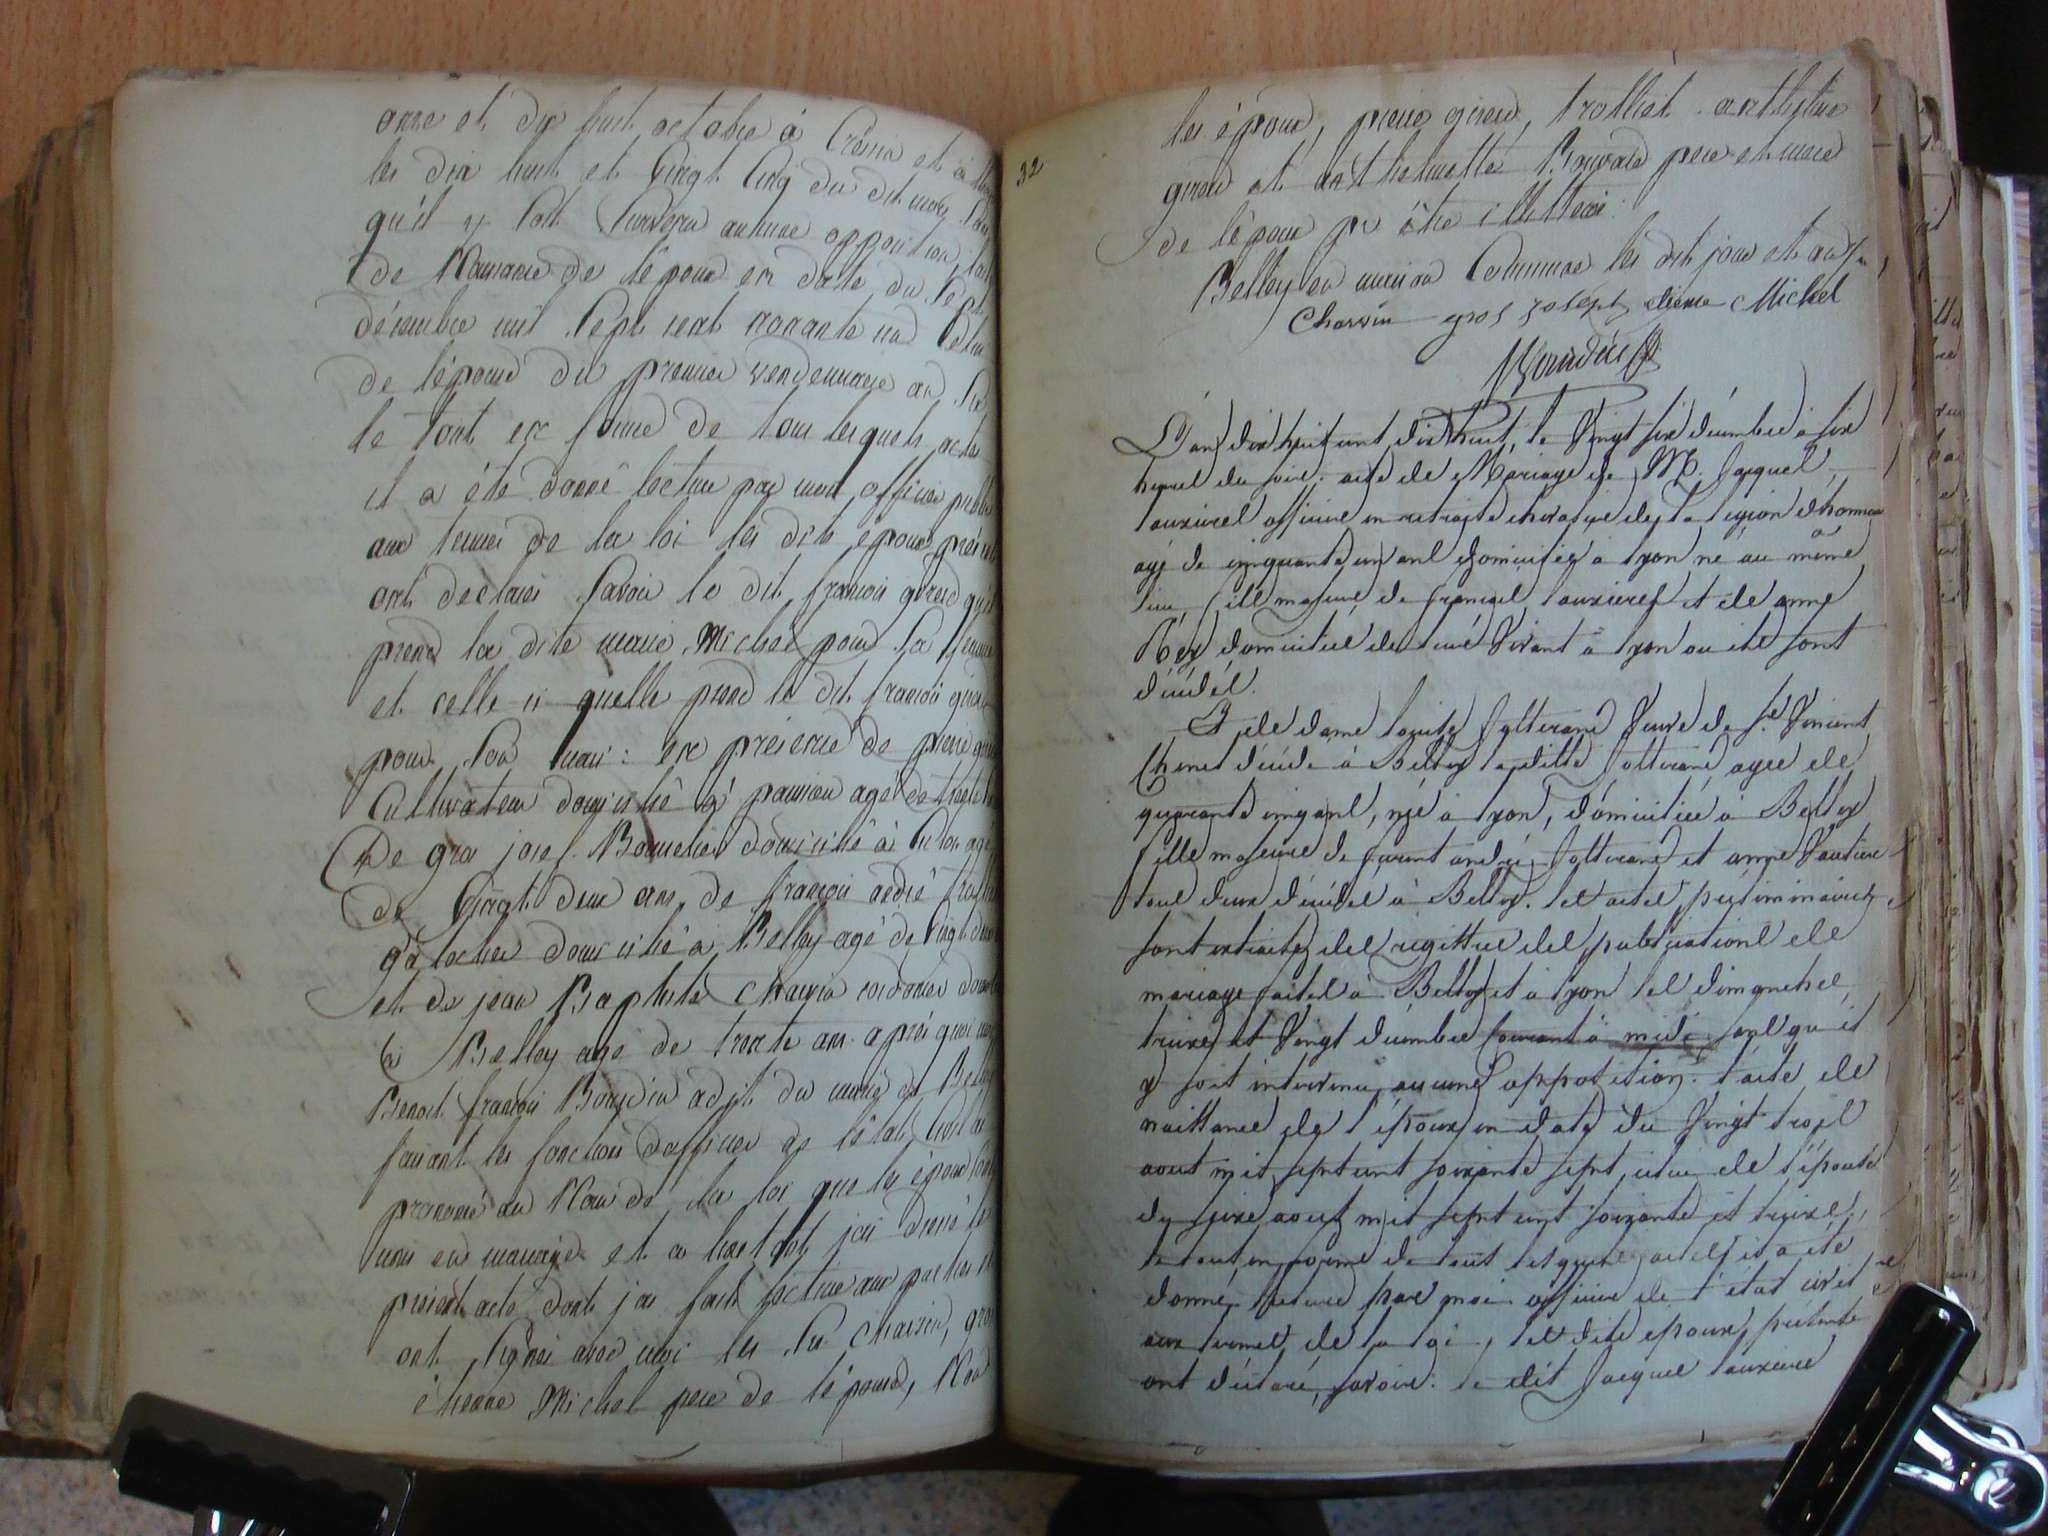 onze et dix huit octobre à Crémieu et à
les dix huit et vingt cinq du dit mois sans
qu'il y soit survenu aucune opposition, l'acte
de Naissance de lépoux en date du sept
décembre mil sept cent nonante un celui
de lépouse du premier vendemiaire an six
le tout en forme de tous lesquels actes
il a été donné lecture par moi officier public
aux termes de la loi les dits époux présents
ont déclaré savoir le dit françois girerd qu'il
prend la dite marie Michel pour sa femme
et celle ci quelle prend le dit francois girerd
pour son mari : en présence de pierre
Cultivateur domicilié à âgé de
De gros josef domicilié à agé
de vingt deux ans, de françois andré
galochier domicilié à Belley agé de vingt deux
et de jean Baptiste Charvin cordonier
à Belley agé de trente ans. après quoi moi
Benoit françois adjt du maire de Belley
faisant les fonctions d'officier de létat civil ai
prononcé au Nom de la loi que les époux sont
unis en mariage et a linstant jai dressé le
présent acte dont jai fait lecture aux parties
ont signés avec moi les srs Charvin, gros
étienne Michel pere de lépouse, Non
32
les époux, pierre girerd, trolliet anthelme
girerd et anthelmette pere et mere
de lépoux pr être illétteré
Belley en mairie Commune les dit jour et an
Charvin gros joseph etiene Michel
L'an dix huit cent dix huit, le vingt six décembre à six
heures du soir. acte de Mariage de Mr. Jacques
Lauzieres officier en retraite chevalier de la légion dhonneur
agé de cinquante un ans domicilié à Lyon né au même
lieu, fils majeur de françois Lauzieres et de anne
Rey domiciliés de leur vivant à Lyon ou ils sont
décédés.
Et de dame Louise veuve de Sr. Vincent
décédé à Belley la ditte agée de
quarante cinq ans, née à Lyon, domiciliée à Belley
fille majeure de furent andré et anne
tous deux décédés à Belley. les actes préliminaires
sont extraits des registres des publications de
mariage faites à Belley et à Lyon les dimanches
treize et vingt décembre courant à midi sans qu'il
y soit intervenu aucune opposition. l'acte de
naissance de l'époux en date du vingt trois
aout mil sept cent soixante sept, celui de l'épouse
du seize aout mil sept cent soixante et treize,
le tout en forme de tous lesquels actes il a été
donné lecture par moi officier de l'état civil
aux termes de la loi, les dits époux présents
ont déclaré, savoir. le dit Jacques Lauziere